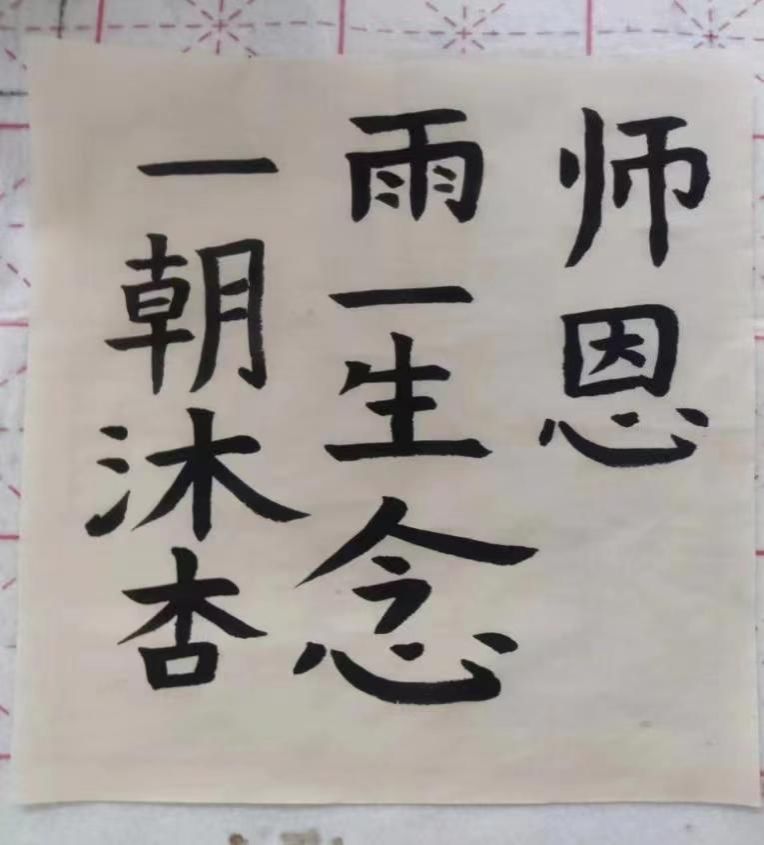 一朝沐杏
雨一生念
师恩